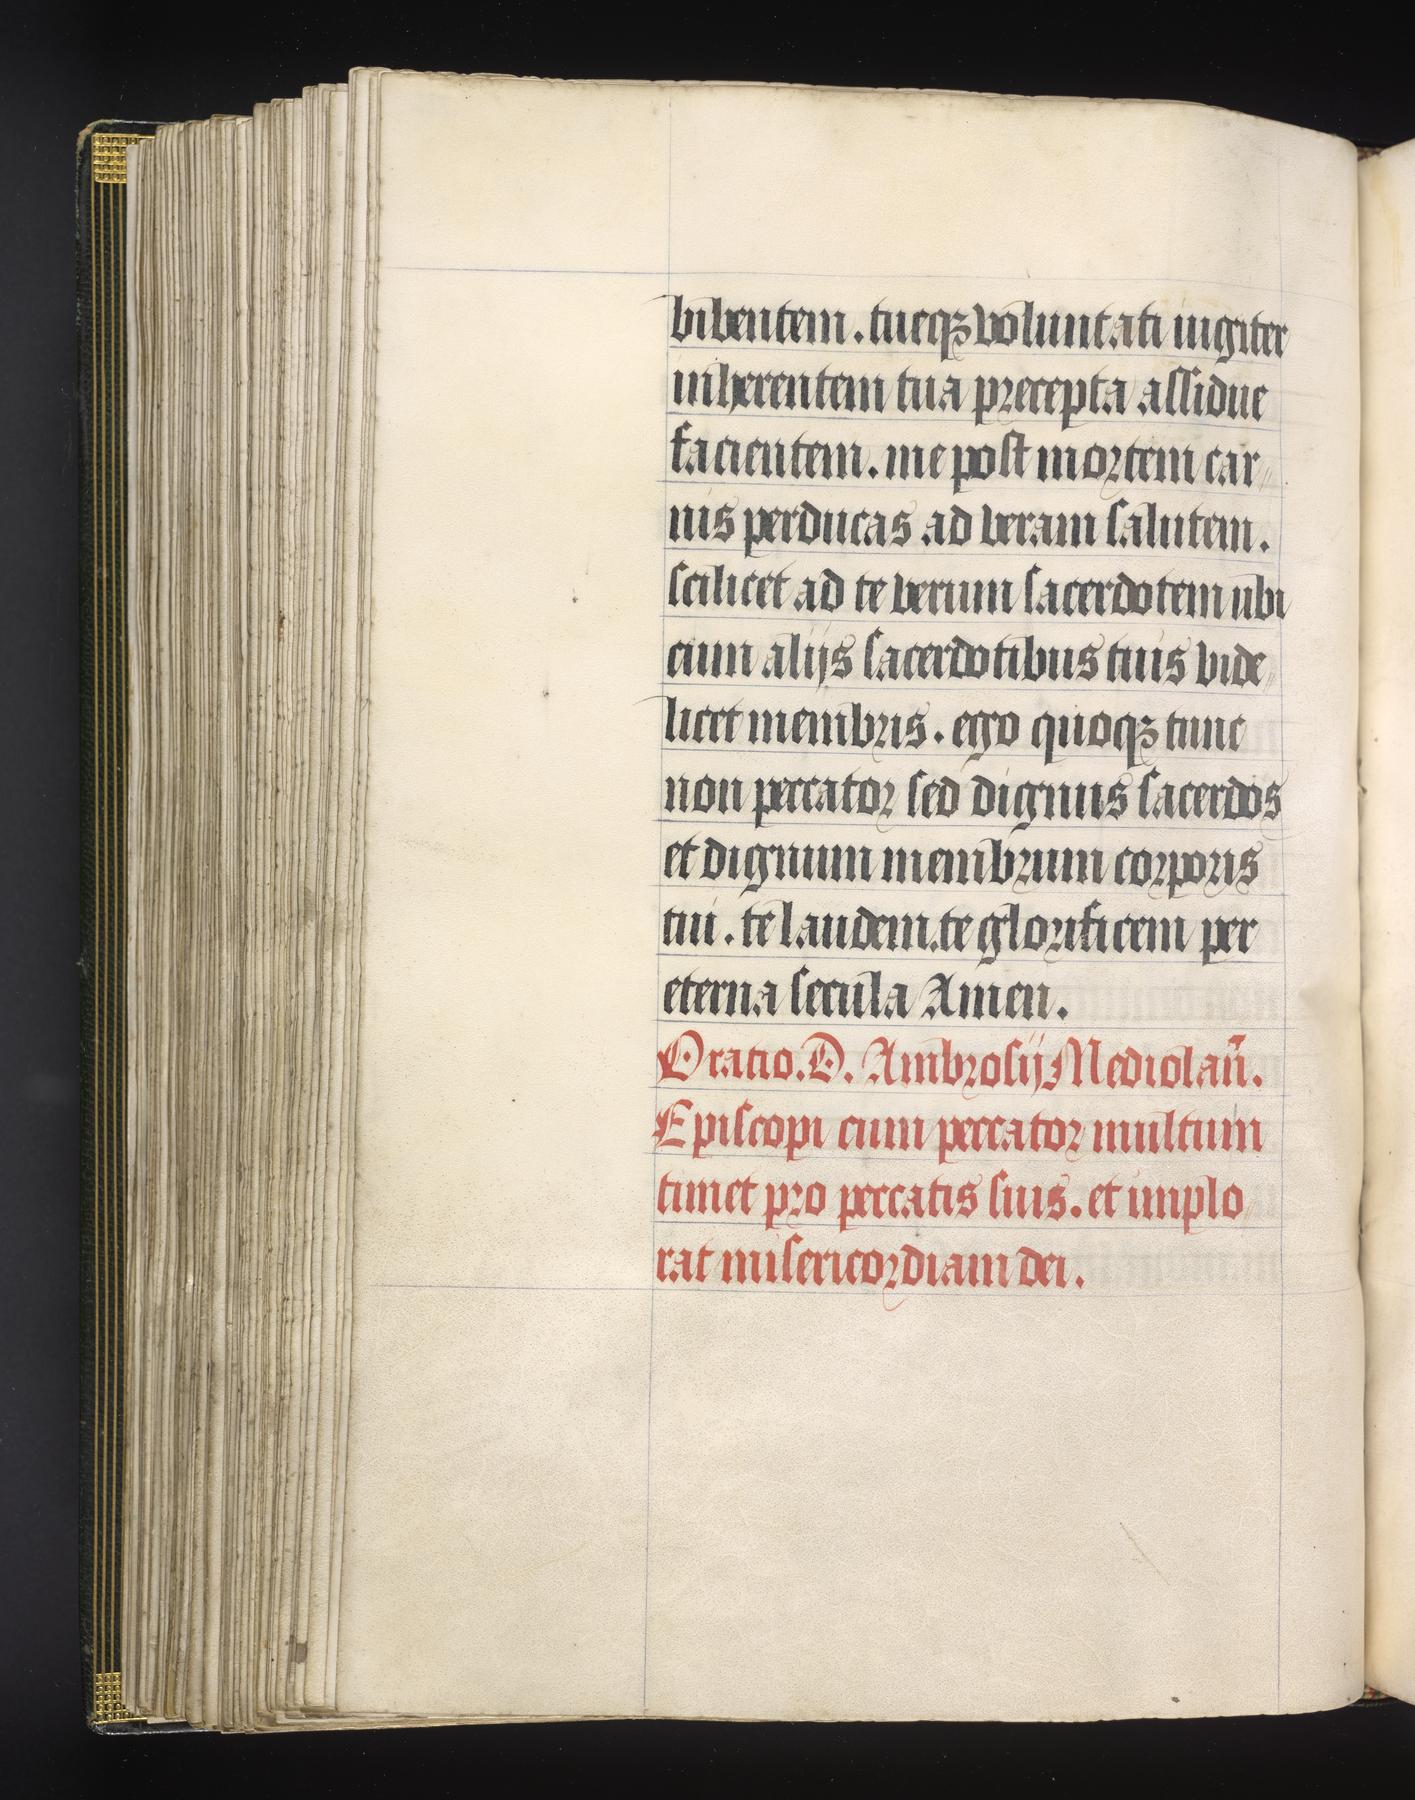 bibentem. tueqꝫ voluntati iugiter
inherentem tua precepta assidue
facientem. me post mortem car⸗
nis perducas ad veram salutem.
scilicet ad te verum sacerdotem ubi
cum alijs sacerdotibus tuis vide⸗
licet membris. ego quoqꝫ tunc
non peccator sed dignus sacerdos
et dignum membrum corporis
tui. te laudem. te glorificem per
eterna secula Amen.
Oratio. D. Ambrosij Mediolan̄.
Episcopi cum peccator multum
timet pro peccatis suis. et implo
rat misericordiam dei.